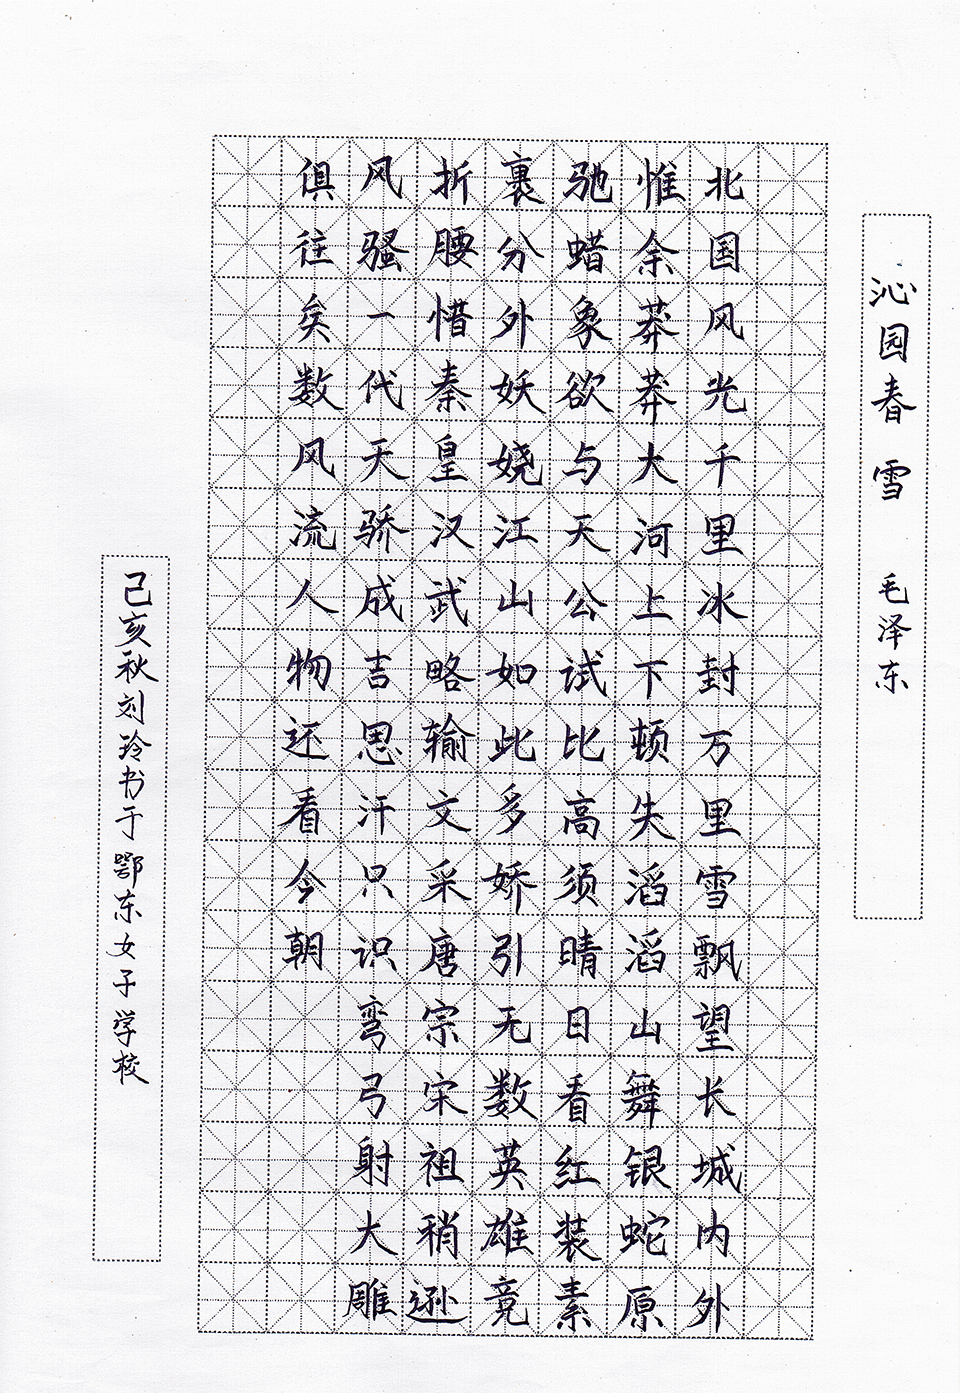 沁园春 雪 毛泽东
北国风光千里冰封万里雪飘望长城内外
惟余莽莽大河上下顿失滔滔山舞银蛇原
驰蜡象欲与天公试比高须晴日看红装素
裹分外妖娆江山如此多娇引无数英雄竟
折腰惜秦皇汉武略输文采唐宗宋祖稍逊
风骚一代天骄成吉思汗只识弯弓射大雕
俱往矣数风流人物还看今朝
己亥秋刘玲书于鄂东女子学校